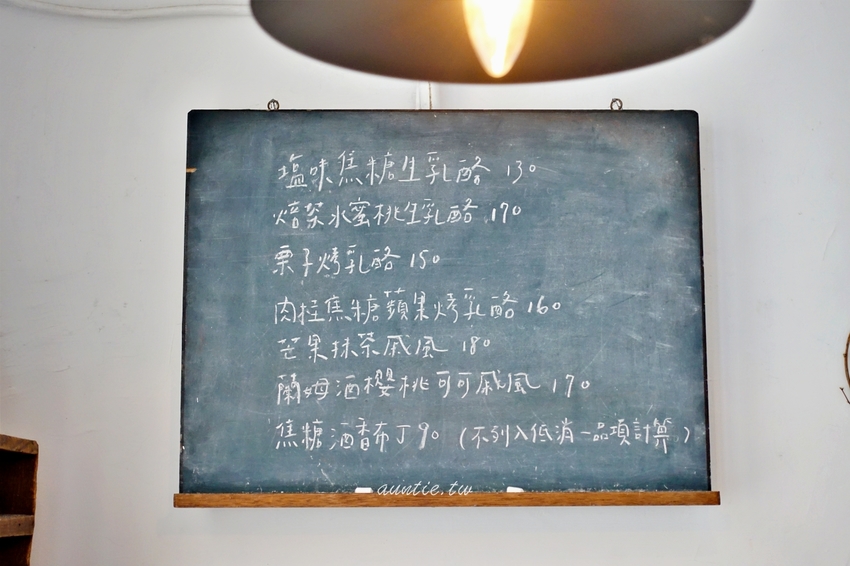 塩味焦糖生乳酪 130
焙茶水蜜桃生乳酪 170
栗子烤乳酪 150
肉桂焦糖蘋果烤乳酪 160
芒果抹茶戚風 180
蘭姆酒櫻桃可可戚風 170
焦糖酒香布丁 90 (不列入低消一品項計算)
auntie.tw